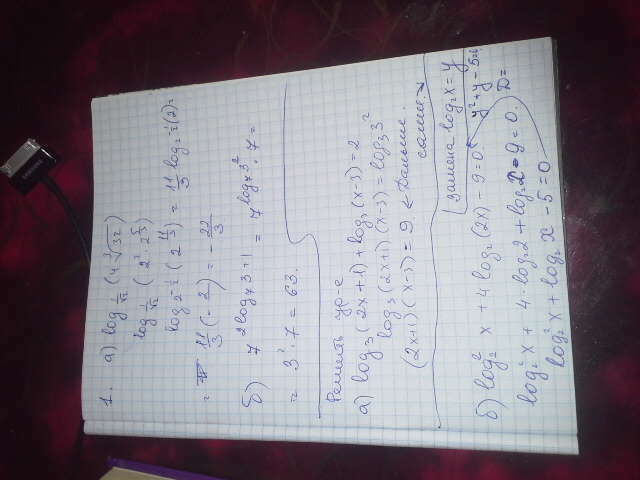 1. а) log_{1/√2} (4 ∛32)
log_{1/√2} (2² · 2^{5/3})
log_{2^{-1/2}} (2^{11/3}) = 11/3 log_{2^{-1/2}} (2) =
= 11/3 (-2) = -22/3
б) 7^{2 log₇ 3 + 1} = 7^{log₇ 3²} · 7 =
= 3² · 7 = 63.
Решить ур-е
а) log₃ (2x+1) + log₃ (x-3) = 2
log₃ (2x+1) (x-3) = log₃ 3²
(2x+1) (x-3) = 9 ← Дальше
сами.
замена log₂x = y
б) log₂² x + 4 log₂ (2x) - 9 = 0
y² + y - 5 = 0
D =
log₂² x + 4 · log₂ 2 + log₂ x - 9 = 0.
log₂² x + log₂ x - 5 = 0